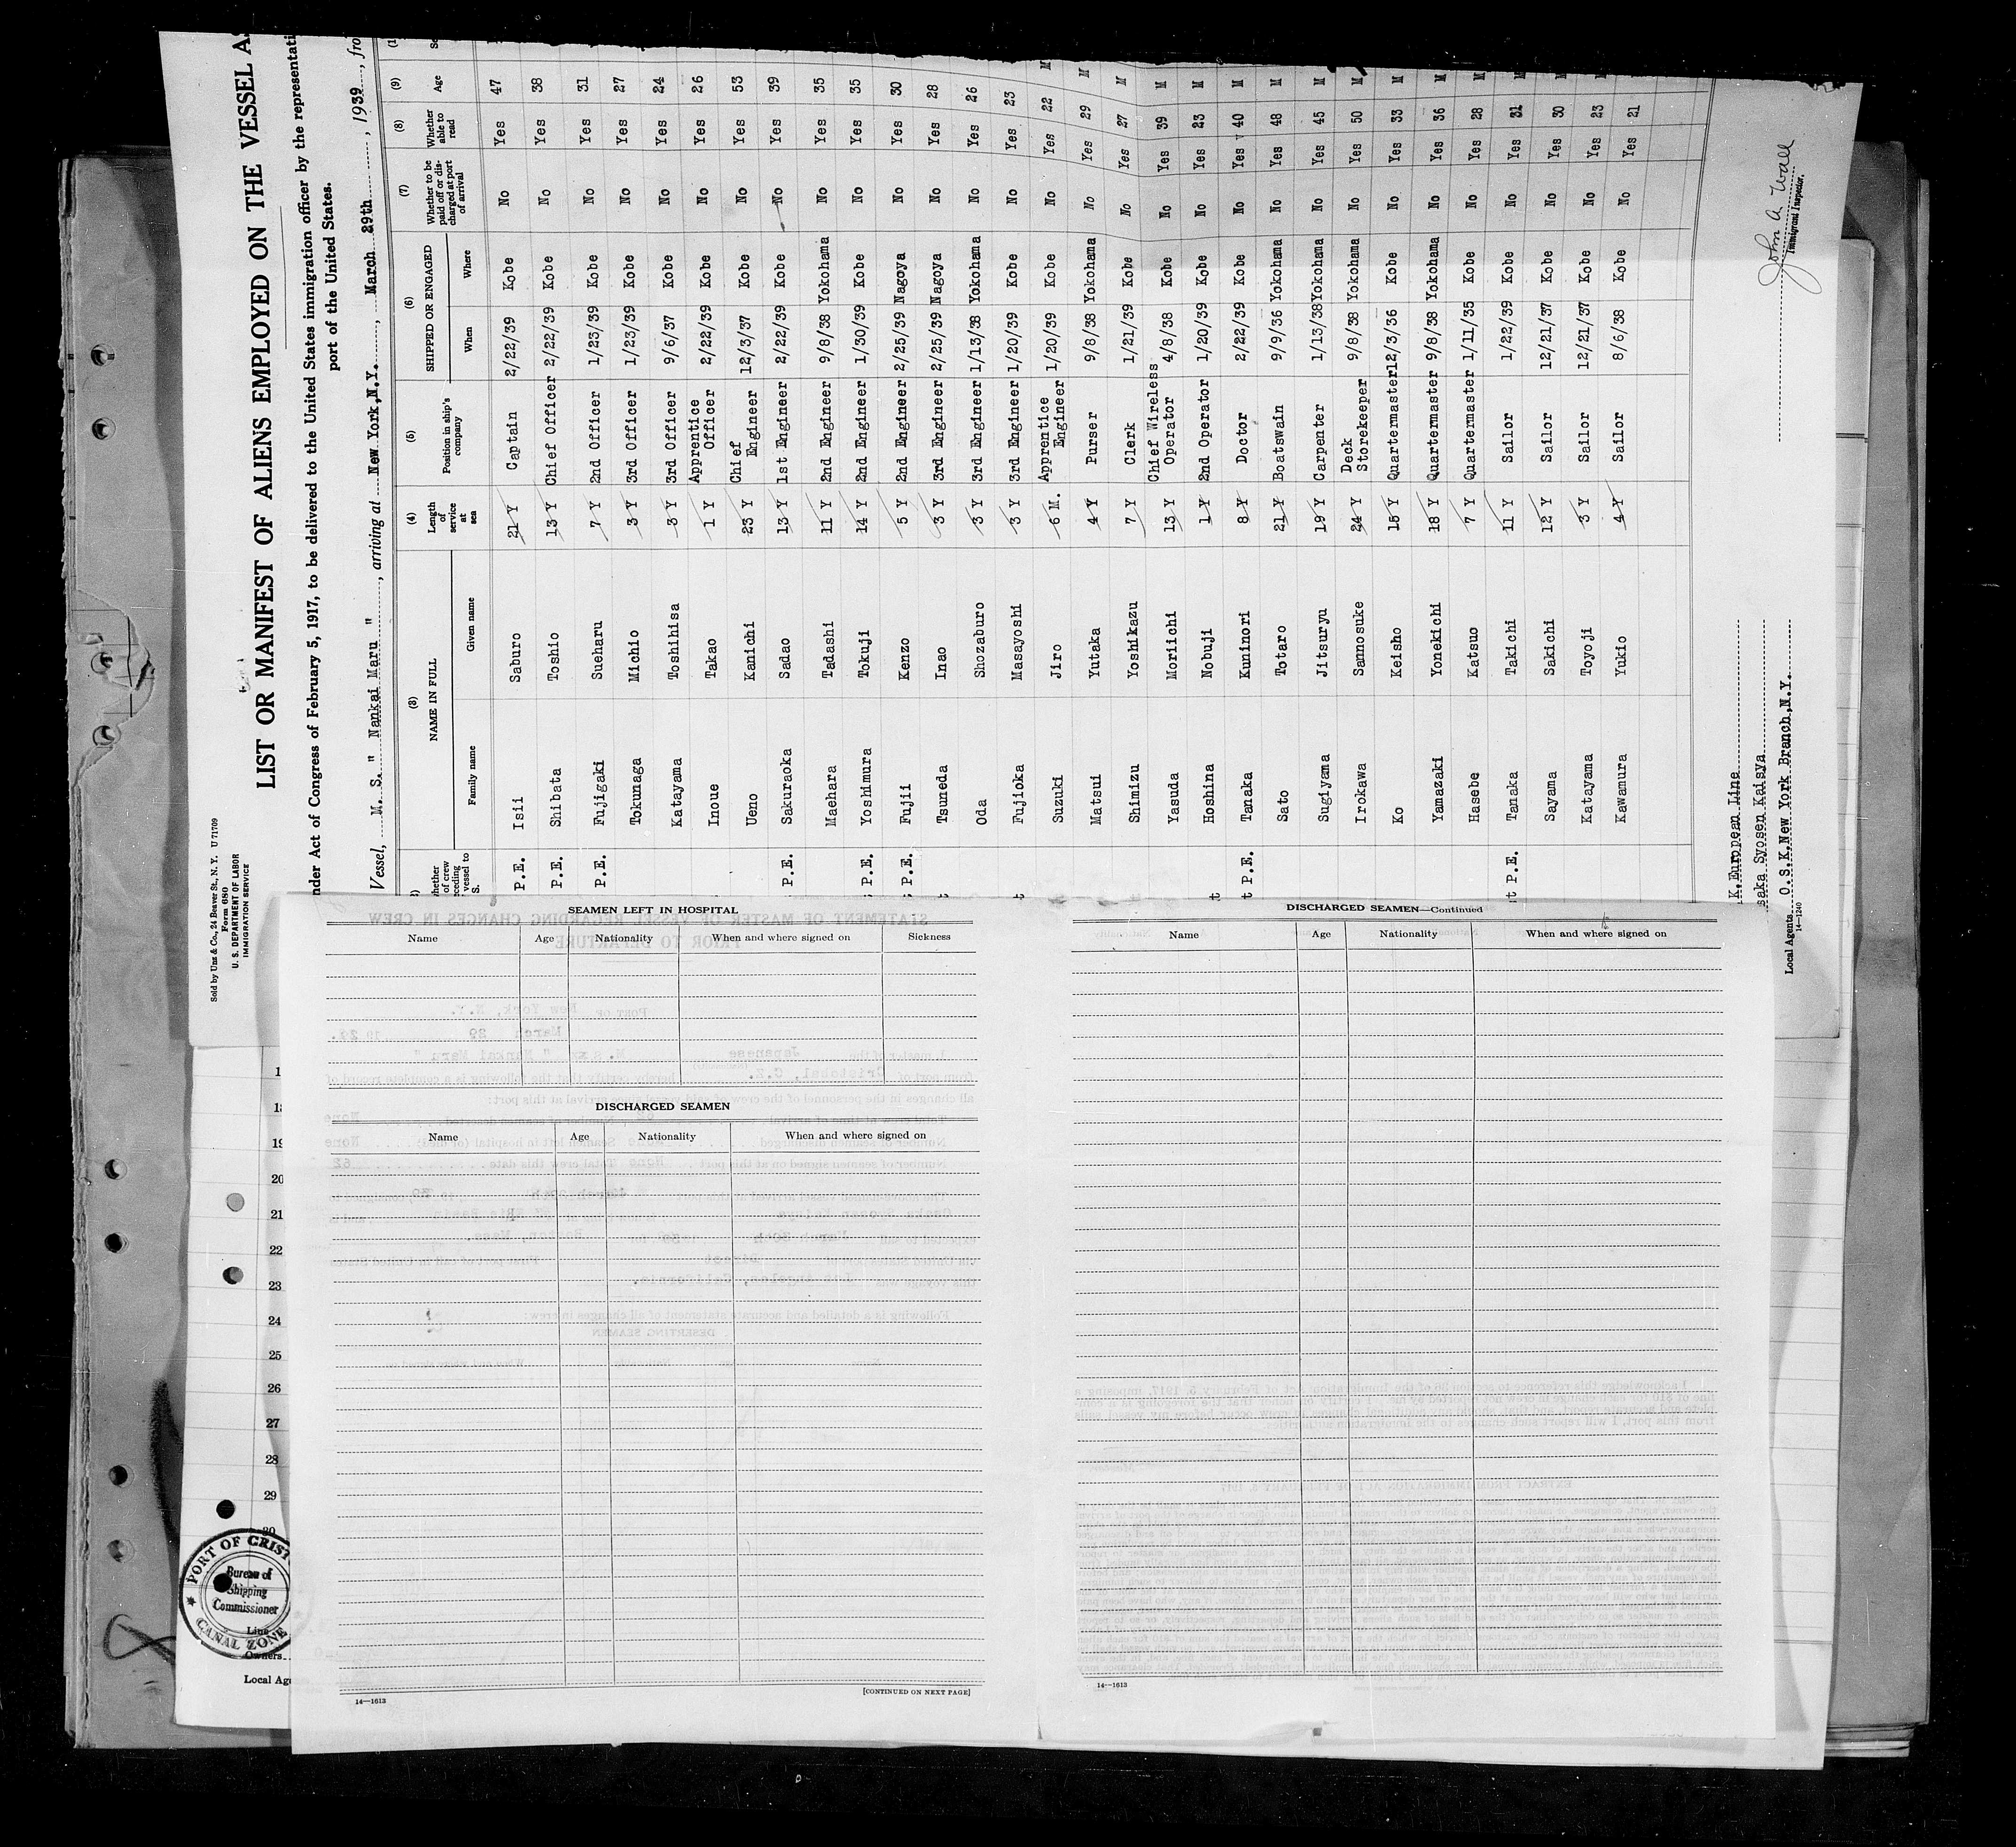 Sold by Unz & Co., 24 Beaver St., N. Y. U 71709
Form 680
U. S. DEPARTMENT OF LABOR
IMMIGRATION SERVICE
LIST OR MANIFEST OF ALIENS EMPLOYED ON THE VESSEL AS
nder Act of Congress of February 5, 1917, to be delivered to the United States immigration officer by the representati
port of the United States.
Vessel, M. S. " Nankai Maru ", arriving at New York,N.Y., March 29th, 1939, fro
(3) (4) (5) (6) (7) (8) (9)
NAME IN FULL Length of service at sea Position in ship's company SHIPPED OR ENGAGED Whether to be paid off or discharged at port of arrival Whether able to read Age
Family name Given name When Where
P.E. Isii Saburo 21 Y Captain 2/22/39 Kobe No Yes 47
P.E. Shibata Toshio 13 Y Chief Officer 2/22/39 Kobe No Yes 38
P.E. Fujigaki Sueharu 7 Y 2nd Officer 1/23/39 Kobe No Yes 31
Tokunaga Michio 3 Y 3rd Officer 1/23/39 Kobe No Yes 27
Katayama Toshihisa 3 Y 3rd Officer 9/6/37 Kobe No Yes 24
Inoue Takao 1 Y Apprentice Officer 2/22/39 Kobe No Yes 26
Ueno Kanichi 23 Y Chief Engineer 12/3/37 Kobe No Yes 53
P.E. Sakuraoka Sadao 13 Y 1st Engineer 2/22/39 Kobe No Yes 39
Maehara Tadashi 11 Y 2nd Engineer 9/8/38 Yokohama No Yes 35
P.E. Yoshimura Tokuji 14 Y 2nd Engineer 1/30/39 Kobe No Yes 35
P.E. Fujii Kenzo 5 Y 2nd Engineer 2/25/39 Nagoya No Yes 30
Tsuneda Inao 3 Y 3rd Engineer 2/25/39 Nagoya No Yes 28
Oda Shozaburo 3 Y 3rd Engineer 1/13/38 Yokohama No Yes 26
Fujioka Masayoshi 3 Y 3rd Engineer 1/20/39 Kobe No Yes 23
Suzuki Jiro 6 M. Apprentice Engineer 1/20/39 Kobe No Yes 22 M
Matsui Yutaka 4 Y Purser 9/8/38 Yokohama No Yes 29 M
Shimizu Yoshikazu 7 Y Clerk 1/21/39 Kobe No Yes 27 M
Yasuda Moriichi 13 Y Chief Wireless Operator 4/8/38 Kobe No Yes 39 M
Hoshina Nobuji 1 Y 2nd Operator 1/20/39 Kobe No Yes 23 M
t P.E. Tanaka Kuninori 8 Y Doctor 2/22/39 Kobe No Yes 40 M
Sato Totaro 21 Y Boatswain 9/9/36 Yokohama No Yes 48 M
Sugiyama Jitsuryu 19 Y Carpenter 1/13/38 Yokohama No Yes 45 M
Irokawa Sannosuke 24 Y Deck Storekeeper 9/8/38 Yokohama No Yes 50 M
Ko Keisho 15 Y Quartermaster 12/3/36 Kobe No Yes 33 M
Yamazaki Yonekichi 18 Y Quartermaster 9/8/38 Yokohama No Yes 36 M
Hasebe Katsuo 7 Y Quartermaster 1/11/35 Kobe No Yes 28 M
t P.E. Tanaka Takichi 11 Y Sailor 1/22/39 Kobe No Yes 31
Sayama Sakichi 12 Y Sailor 12/21/37 Kobe No Yes 30
Katayama Toyoji 3 Y Sailor 12/21/37 Kobe No Yes 23
Kawamura Yukio 4 Y Sailor 8/6/38 Kobe No Yes 21
K.European Line
saka Syosen Kaisya
Local Agents O.S.K.New York Branch,N.Y.
14—1240
John A Wall
Immigrant Inspector.
SEAMEN LEFT IN HOSPITAL
Name Age Nationality When and where signed on Sickness
DISCHARGED SEAMEN
Name Age Nationality When and where signed on
14—1613
[CONTINUED ON NEXT PAGE]
DISCHARGED SEAMEN—Continued
Name Age Nationality When and where signed on
14—1613
19
20
21
22
23
24
25
26
27
28
29
30
PORT OF CRIST
Bureau of
Shipping
Commissioner
CANAL ZONE
Line
Owners
Local Age